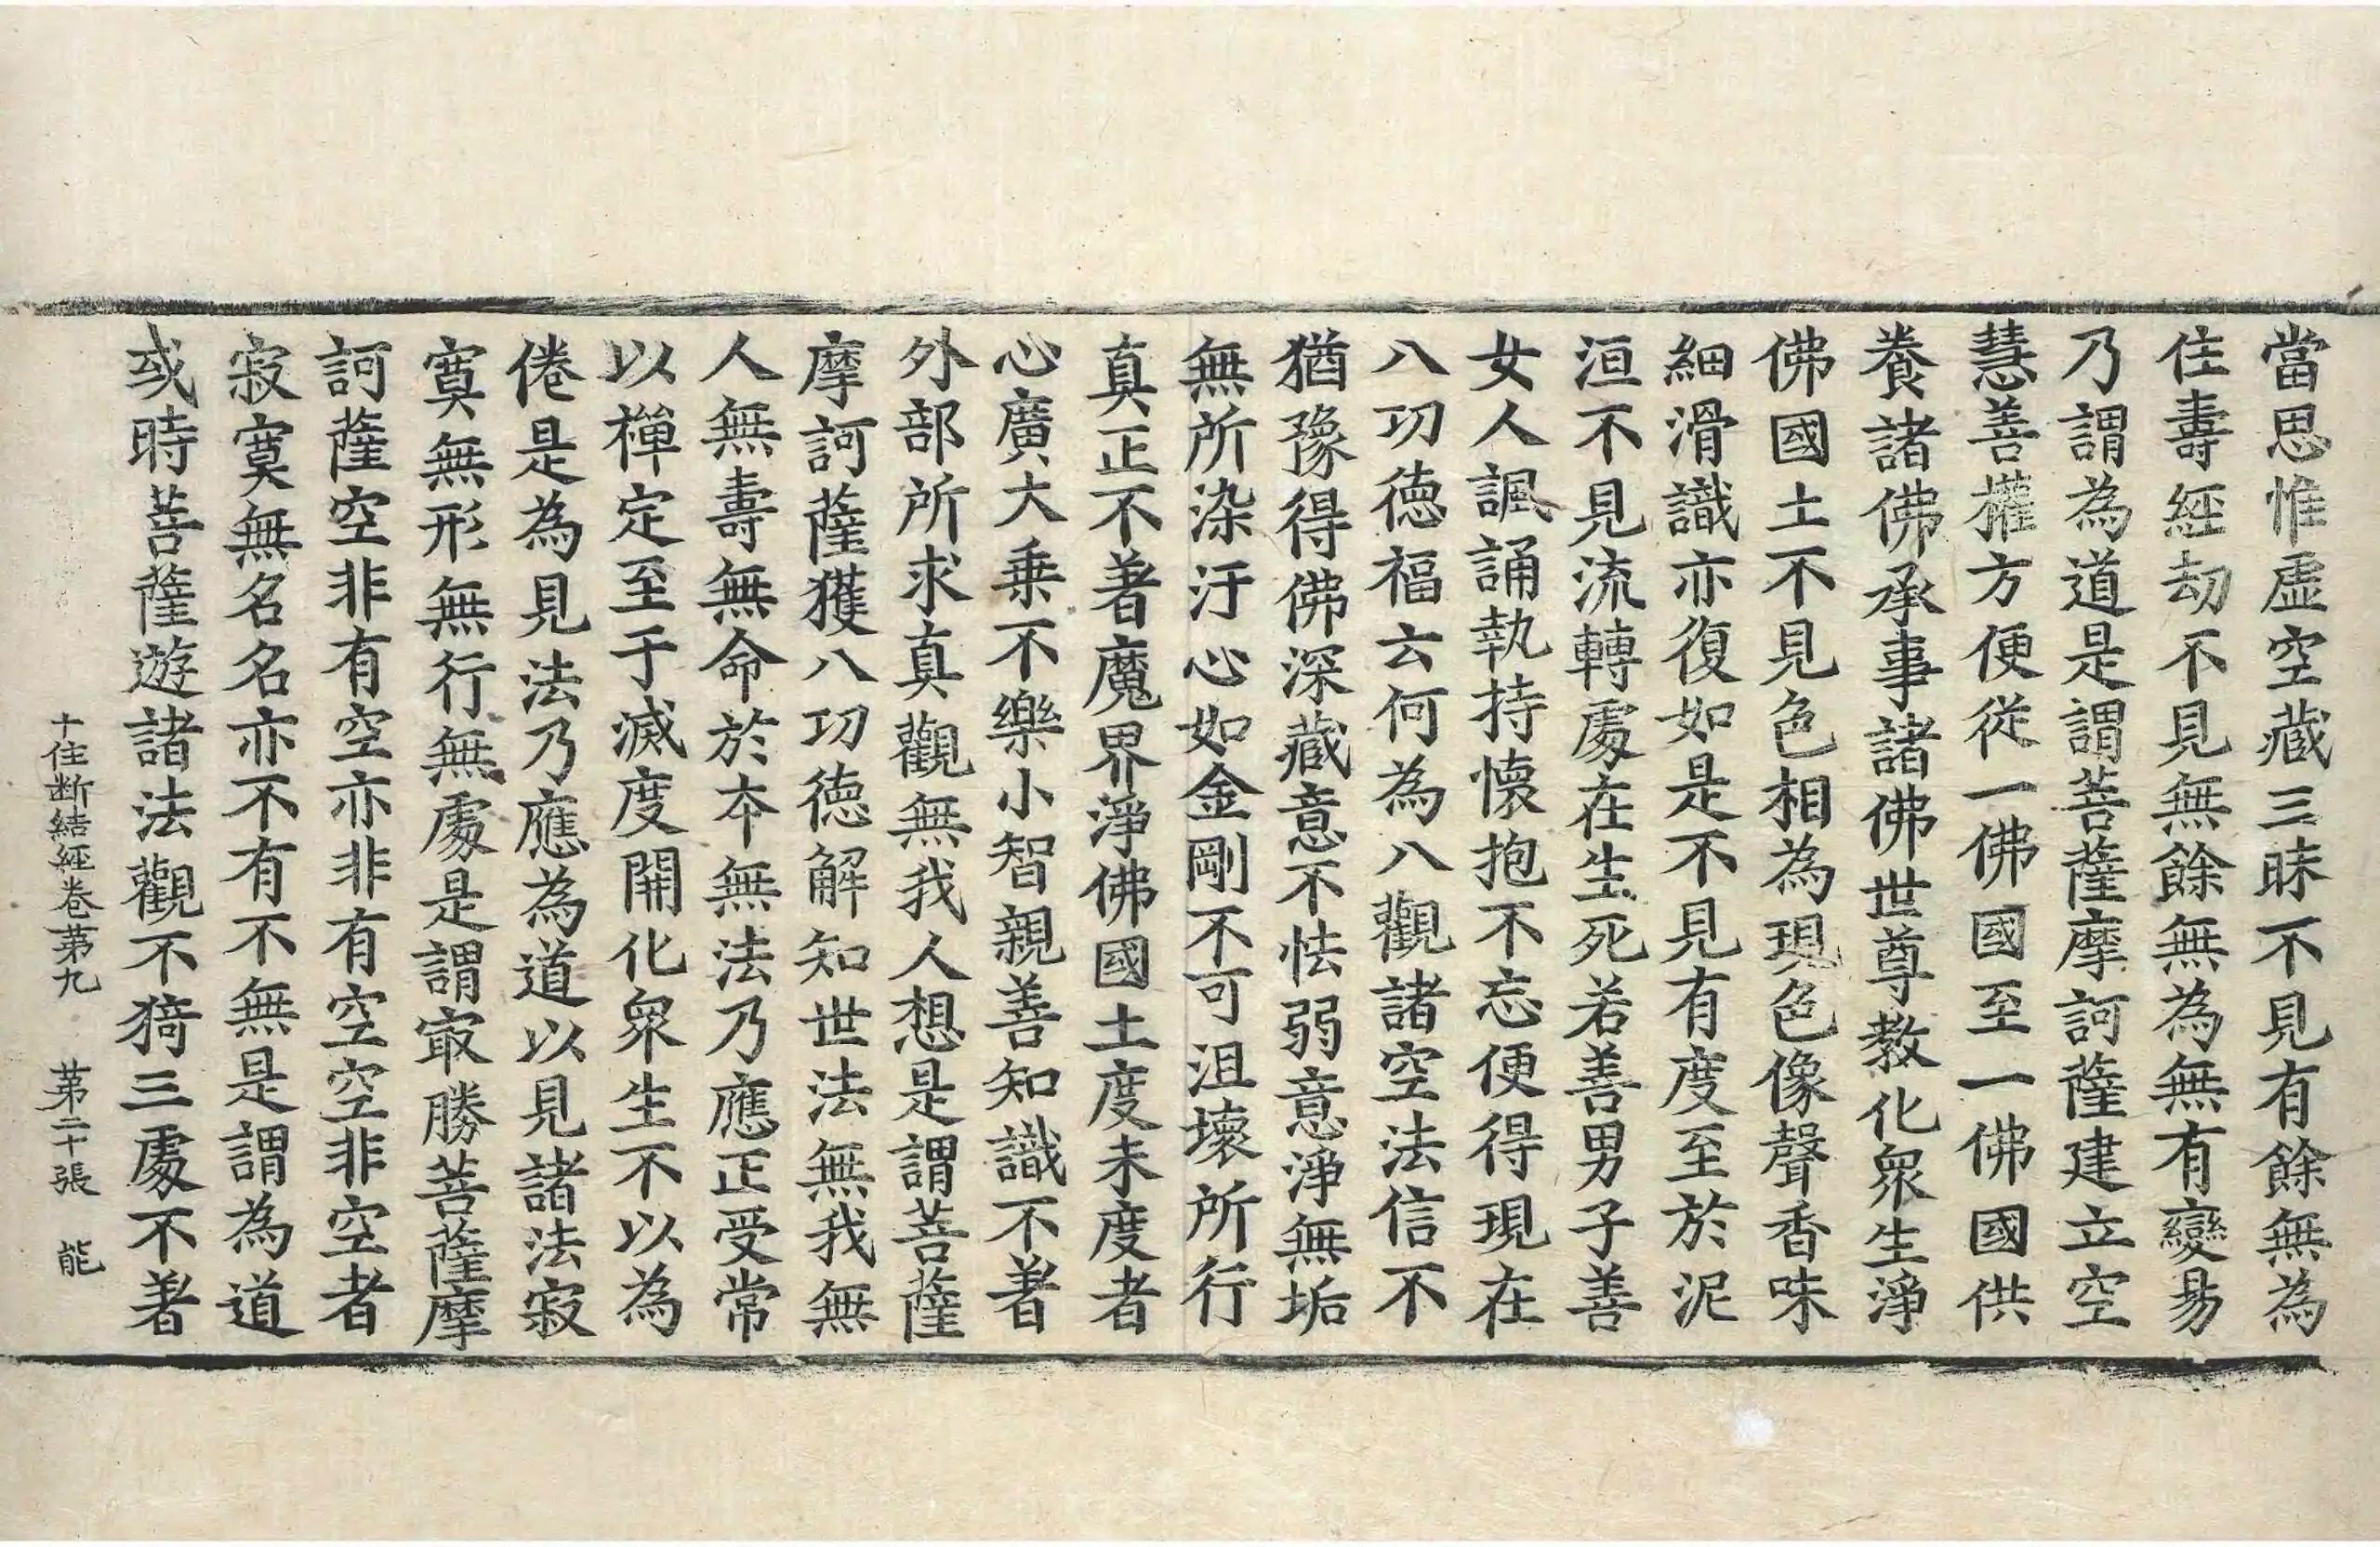 當思惟虛空藏三昧不見有餘無為
住壽經劫不見無餘無為無有變易
乃謂為道是謂菩薩摩訶薩建立空
慧善權方便從一佛國至一佛國供
養諸佛承事諸佛世尊教化衆生淨
佛國土不見色相為現色像聲香味
細滑識亦復如是不見有度至於泥
洹不見流轉處在生死若善男子善
女人諷誦執持懷抱不忘便得現在
八功德福云何為八觀諸空法信不
猶豫得佛深藏意不怯弱意淨無垢
無所染汙心如金剛不可沮壞所行
真正不著魔界淨佛國土度未度者
心廣大乗不樂小智親善知識不著
外部所求真觀無我人想是謂菩薩
摩訶薩獲八功德解知世法無我無
人無壽無命於本無法乃應正受常
以禪定至于滅度開化衆生不以為
倦是為見法乃應為道以見諸法寂
寞無形無行無處是謂㝡勝菩薩摩
訶薩空非有空亦非有空空非空者
寂寞無名名亦不有不無是謂為道
或時菩薩遊諸法觀不猗三處不著
十住断結經卷第九　第二十張　能